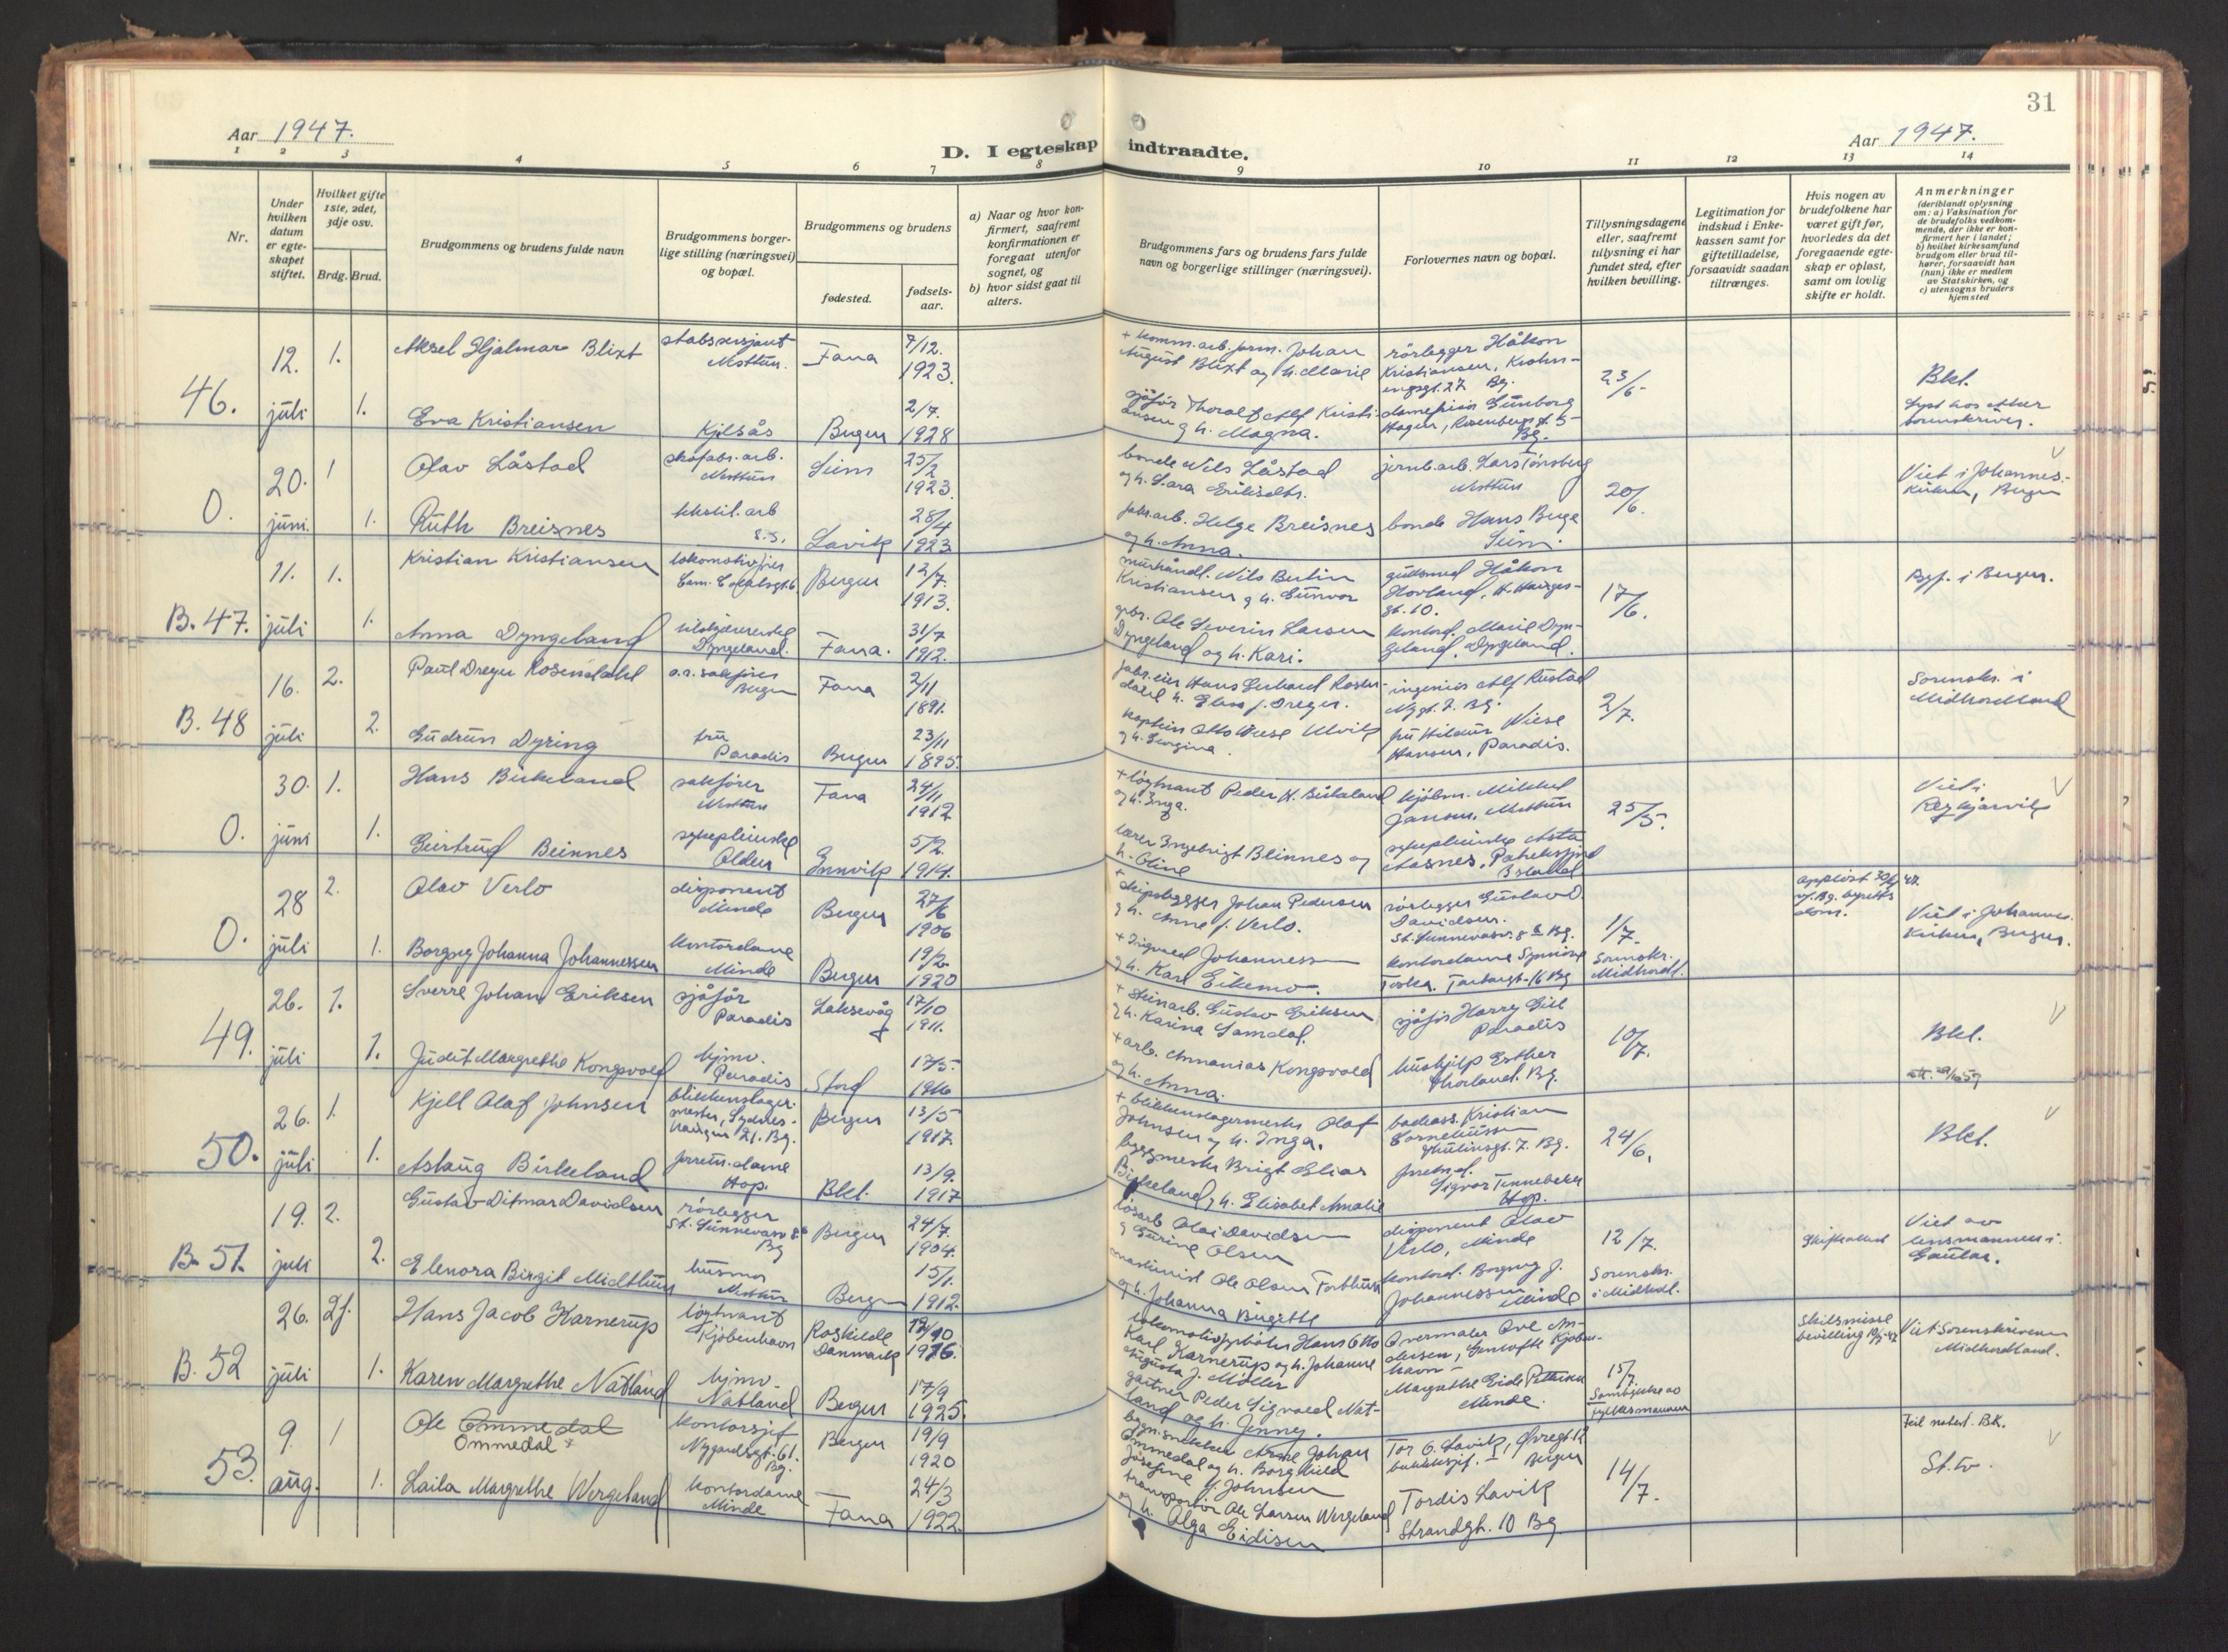 31
Aar 1947.
D. I egteskap indtraadte.
Aar 1947.
1 2 3 4 5 6 7 8 9 10 11 12 13 14
Nr.
Under hvilken datum er egteskapet stiftet.
Hvilket gifte 1ste, 2det, 3dje osv.
Brdg. Brud.
Brudgommens og brudens fulde navn
Brudgommens borgerlige stilling (næringsvei) og bopæl.
Brudgommens og brudens
fødested.
fødselsaar.
a) Naar og hvor konfirmert, saafremt konfirmationen er foregaat utenfor sognet, og
b) hvor sidst gaat til alters.
Brudgommens fars og brudens fars fulde navn og borgerlige stillinger (næringsvei).
Forlovernes navn og bopæl.
Tillysningsdagene eller, saafremt tillysning ei har fundet sted, efter hvilken bevilling.
Legitimation for indskud i Enkekassen samt for giftetilladelse, forsaavidt saadan tiltrænges.
Hvis nogen av brudefolkene har været gift før, hvorledes da det foregaaende egteskap er opløst, samt om lovlig skifte er holdt.
Anmerkninger
(deriblandt oplysning om: a) Vaksination for de brudefolks vedkommende, der ikke er konfirmert her i landet;
b) hvilket kirkesamfund brudgom eller brud tilhører, forsaavidt han (hun) ikke er medlem av Statskirken, og
c) utensogns bruders hjemsted
46. 12. juli
1. Aksel Hjalmar Blixt stabssersjant Nesttun. Fana 7/12. 1923.
+ komm.arb.form. Johan August Blixt og h. Marie
rörlegger Håkon Kristiansen, Krohnengsgt. 27 Bg.
23/6-
Bkl.
1. Eva Kristiansen Kjelsås Bergen 2/7. 1928
sjåför Thoralf Alf Kristiansen og h. Magna.
Hagen, Rosenbergsgt. 5 Bg.
0. 20. juni.
1 Olav Låstad skofabr.arb. Nesttun Seim 25/2 1923.
bonde Nils Låstad og h. Lara Eriksdtr.
jernb.arb. Lars Tönsberg Nesttun
20/6.
Viet i Johanneskirken, Bergen
1. Ruth Breisnes tekstil.arb s.s. Lavik 28/4 1923.
fabr.arb. Helge Breisnes og h. Anna.
bonde Hans Berge Seim.
B. 47. 11. juli
1. Kristian Kristiansen Bergen 12/7. 1913.
Nils Bertin Kristiansen og h. Gunvor
gullsmed Håkon Hovland, H. Hauges-gt. 10.
17/6.
Bgf. i Bergen.
1. Anna Dyngeland Dyngeland. Fana. 31/7 1912.
gbr. Ole Severin Larsen Dyngeland og h. Kari.
kontord. Marie Dyngeland, Dyngeland.
B. 48 16. juli
2. Paul Dreyer Rosendahl o.r. sakförer Bergen Fana 2/11 1891.
fabr.eier Hans Gerhard Rosendahl h. Elen f. Dreyer.
ingeniör Alf Rustad Nygt. 7. Bg.
2/7.
Sorenskr. i Midhordland
2. Gudrun Dyring fru Paradis Bergen 23/11 1895.
kaptein Otto Wiese Ulvik og h. Georgina.
fru Hildur Wiese Hansen, Paradis.
0. 30. juni
1. Hans Birkeland sakförer Nesttun Fana 24/11 1912
+ löytnant Peder H. Birkeland og h. Inga.
Mikkel Jansen, Nesttun
25/5.
Viet i Reykjavik
1. Geirtrud Beinnes sykepleierske Olden Innvik 5/2. 1914.
lærer Ingebrigt Beinnes og h. Oline
sykepleierske Asta Aasnes, Island
0. 28 juli
2. Olav Verlo disponent Minde Bergen 27/6 1906
+ skipsbygger Johan Pedersen og h. Anne f. Verlo.
rörlegger Gustav D. Davidsen. St. Sunnevasv. 8 b Bg.
1/7.
Viet i Johanneskirken, Bergen.
1. Borgny Johanna Johannessen kontordame Minde Bergen 19/2. 1920
+ Ingvald Johannessen og h. Karl Eikemo.
kontordame Synnöve
Sorenskr. Midhordl.
49. 26. juli
1. Sverre Johan Eriksen sjåför Paradis Laksevåg 17/10 1911.
+ steinarb. Gustav Eriksen og h. Karina Samdal.
sjåför Harry Gill Paradis
10/7.
Bkl.
1. Judit Margrethe Kongsvold hjmv. Paradis Stord 17/5. 1916
+ arb. Annanias Kongsvold og h. Anna.
hushjelp Esther Hovland. Bg.
50. 26. juli
1. Kjell Olaf Johnsen blikkenslagermester, Sydneshaugen 21. Bg. Bergen 13/5 1917.
+ blikkenslagermester Olaf Johnsen og h. Inga.
Kristian Corneliussen 7. Bg.
24/6.
Bkl.
1. Aslaug Birkeland forretn.dame Hop. Bkl. 13/9. 1917
byggmester Brigt Elias Birkeland og h. Elisabet Amalie
Sigvor Tennebekk Hop.
B. 51. 19. juli
2. Gustav Ditmar Davidsen rörlegger St. Sunnevasv 8b Bg Bergen 24/7. 1904.
lösarb Olai Davidsen og Gurine Olsen
disponent Olav Verlo, Minde
12/7.
Skifteattest
Viet av lensmannen i Gaular.
2. Elenora Birgit Midthun husmor Nesttun Bergen 15/1. 1912.
maskinist Ole Olsen og h. Johanna Birgitte
kontord. Borgny J. Johannessen Minde
Sorenskr. i Midhdl.
B. 52 26. juli
2f. Hans Jacob Karnerup löytnant Kjöbenhavn Roskilde Danmark 12/10 1916.
lokomotivfyrböter Hans Otto Karl Karnerup og h. Johanne Augusta f. Möller
Overmaler Ove Andersen, Gentofte Kjöbenhavn
15/7.
Skilsmisse bevilling
Viet Sorenskriveren Midhordland.
1. Karen Margrethe Natland hjmv. Natland Bergen 17/9 1925.
gartner Peder Sigvald Natland og h. Jenny.
Margrethe Eide Pettersen Minde.
Samtykke av fylkesmannen
53. 9. aug.
1 Ole Ommedal Ommedal kontorsjef Nygaardsgt. 61. Bg. Bergen 19/9 1920
bygn.snekker Arne Johan Ommedal og h. Borghild Josefine f. Johnsen
Tor O. Lavik, Övregt. 12 Bergen
14/7.
Feil notert. B.K.
St.v.
1. Laila Margrethe Wergeland kontordame Minde Fana 24/3 1922.
transportör Ole Larsen Wergeland og h. Olga Eidisen
Tordis Lavik Strandgt. 10 Bg